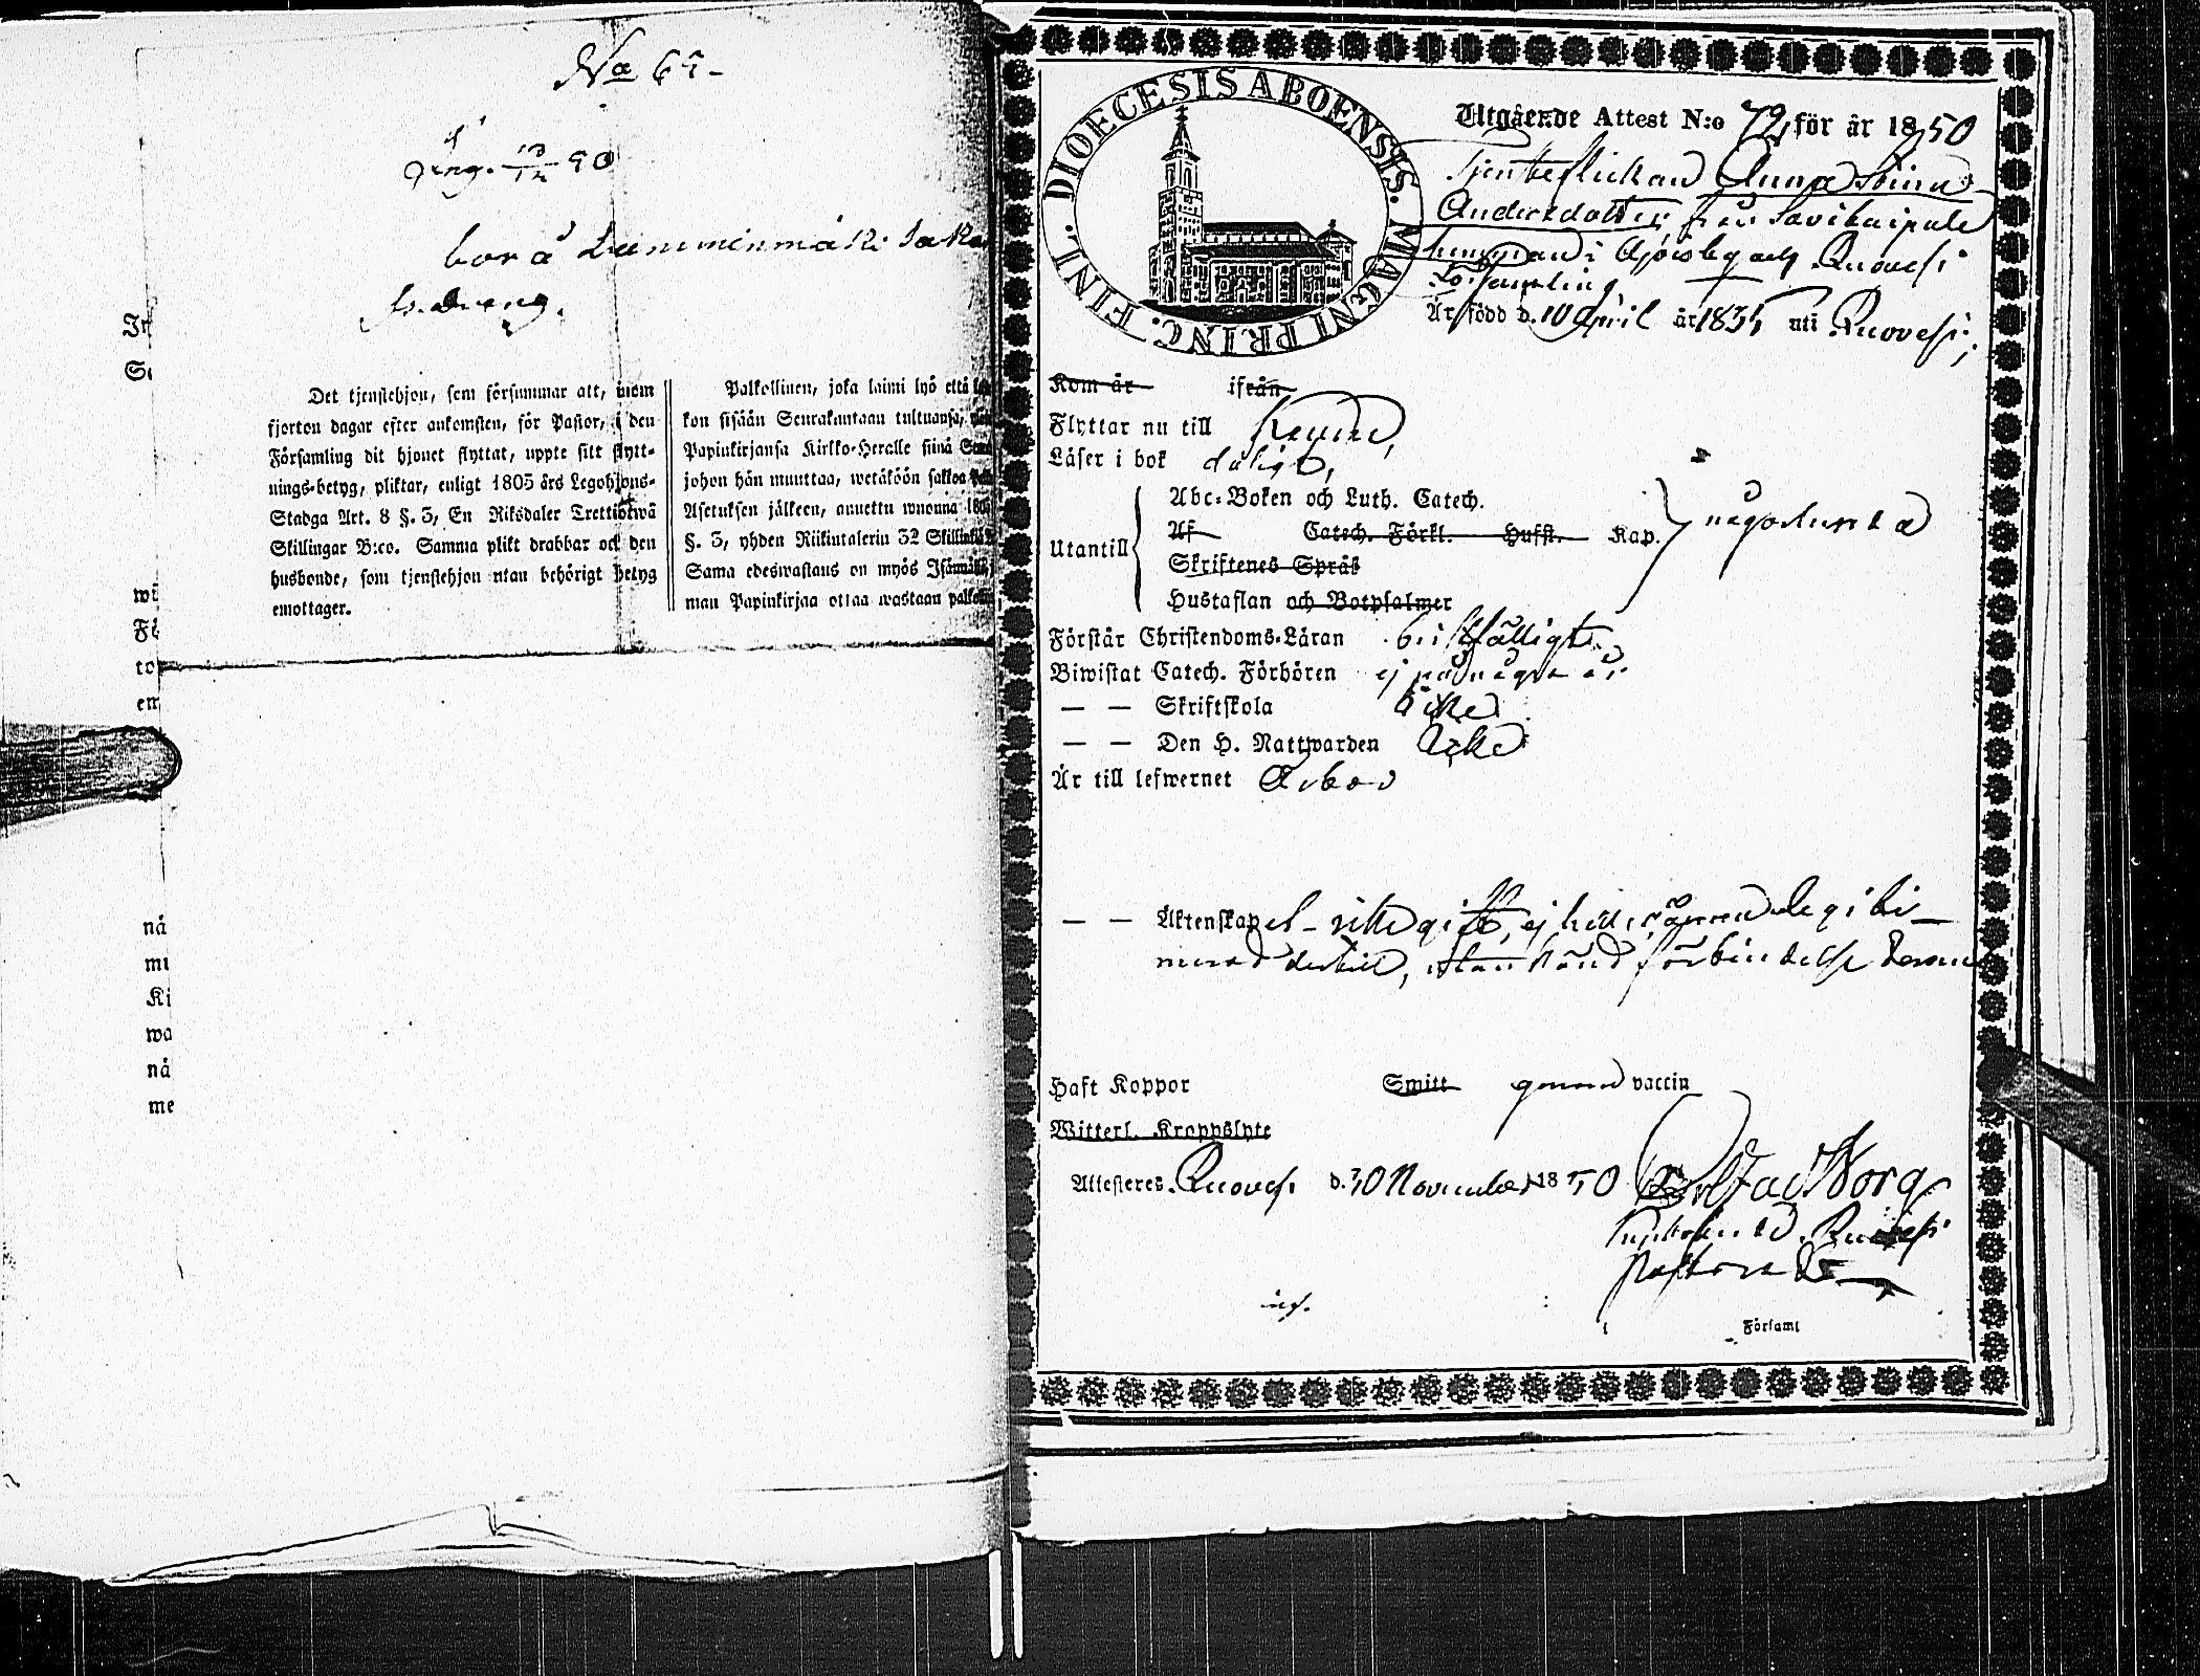 No 65-
Ing. 10/12 50
bor å Lumminmäki
Det tjenstehjon, som försummar att, inom
fjorton dagar efter ankomsten, för Pastor, i den
Församling dit hjonet flyttat, uppte sitt flytt-
nings-betyg, pliktar, enligt 1805 års Legohjons-
Stadga Art. 8 §. 3, En Riksdaler Trettiotwå
Skillingar B:co. Samma plikt drabbar ock den
husbonde, som tjenstehjon utan behörigt betyg
emottager.
Palkollinen, joka laimi lyö että
kon sisään Seurakuntaan tultuansa,
Papinkirjansa Kirkko-Heralle siinä
johon hän muuttaa, wetäköön sakkoa
Asetuksen jälkeen, annettu wuonna 180
§. 3, yhden Riikintalerin 32 Skillinkiä
Sama edeswastaus on myös
man Papinkirjaa ottaa wastaan
wi
Fö
to
em
nå
mi
Ki
wa
nå
me
DIOECESIS ABOENSIS. MAGNI PRINC. FINL.
Utgående Attest N:o 72, för år 1850
Tjensteflickan Anna Stina
Andersdotter, från Savikaipale
hemman i Ajosby och Ruovesi
Församling
Är född d. 10 April år 1835 uti Ruovesi;
Kom år ifrån
Flyttar nu till Keuru,
Läser i bok dåligt,
Utantill
Abc-Boken och Luth. Catech.
Af Catech. Förkl. Hufst. Kap.
Skriftenes Språk
Hustaflan och Botpsalmer
någorlunda
Förstår Christendoms-Läran bristfälligt
Biwistat Catech. Förhören ej på några år
— — Skriftskola icke
— — Den H. Nattwarden icke
Är till lefwernet Ärbar
— — Äktenskap el - icke gift, ej heller legiti-
merad dertill, utan känd förbindelse
Haft Koppor Smitt genom vaccin
Witterl. Kroppslyte
Attesteres. Ruovesi d. 30 November 1850
Ruovesi
Församl